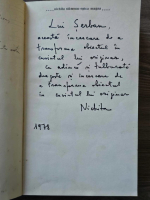 Lui Șerban,
această încercare de a
transforma obiectul în
cuvîntul lui originar,
cu adîncă și tulburată
dragoste și încercare de
a transforma obiectul
în cuvîntul lui originar
Nichita
1978